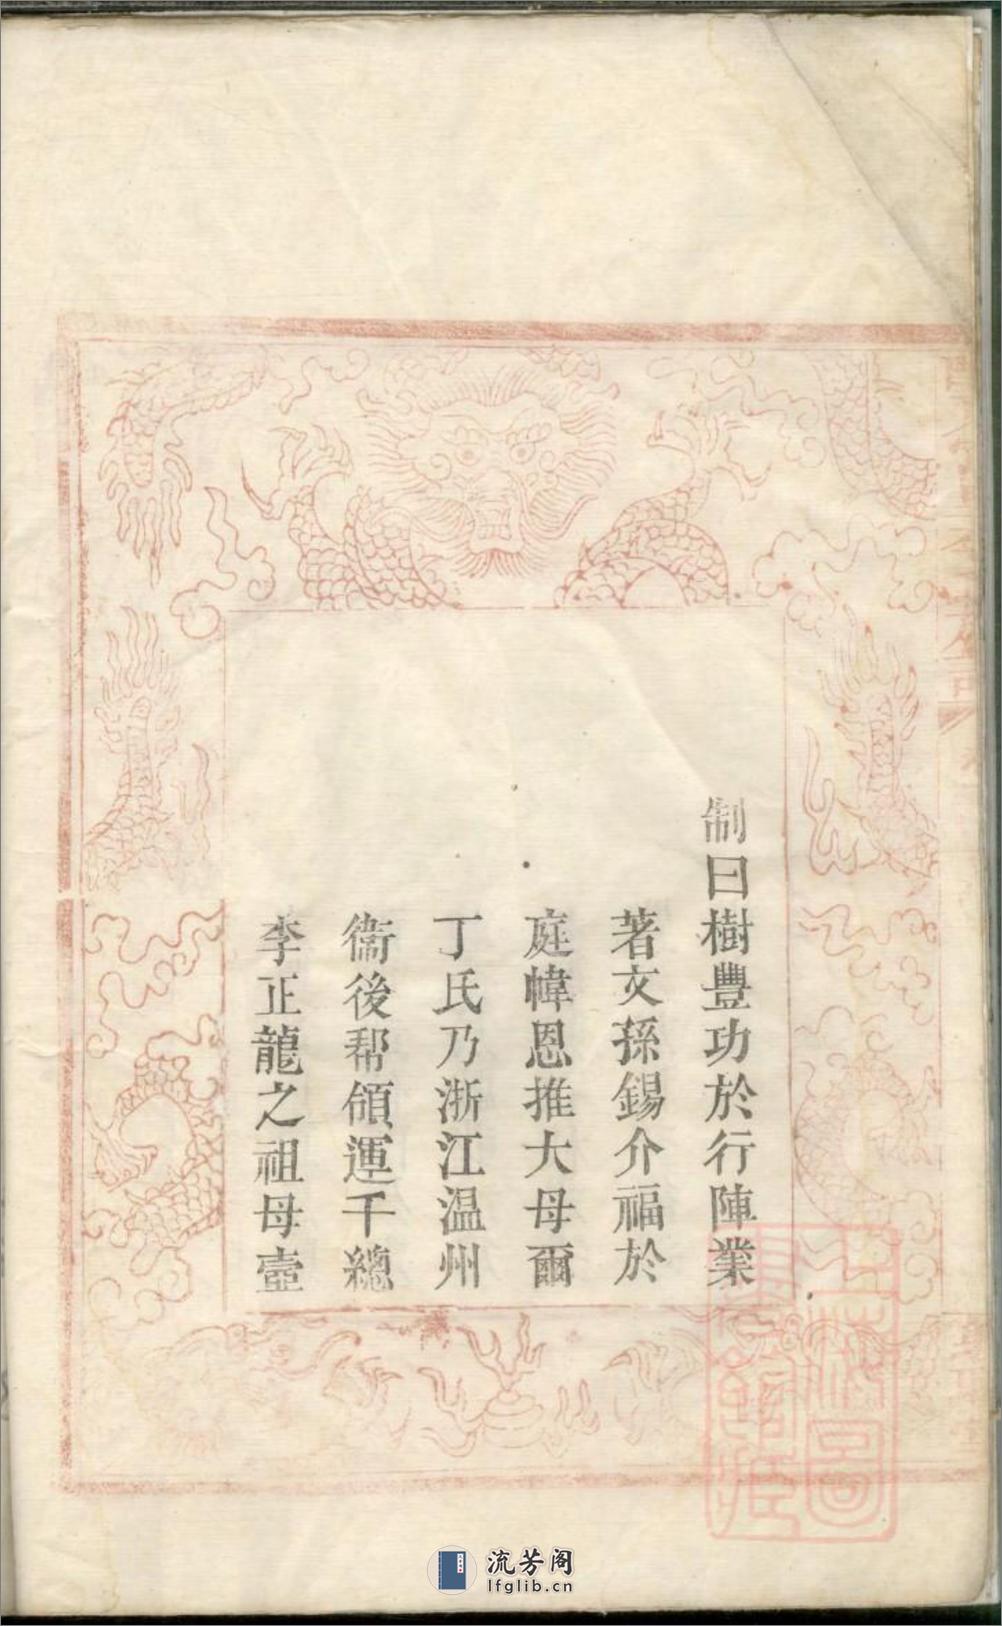 制曰樹豐功於行陣業
著文孫錫介福於
庭幃恩推大母爾
丁氏乃浙江温州
衞後帮領運千總
李正龍之祖母壼
上海圖書館藏
流芳阁
lfglib.cn